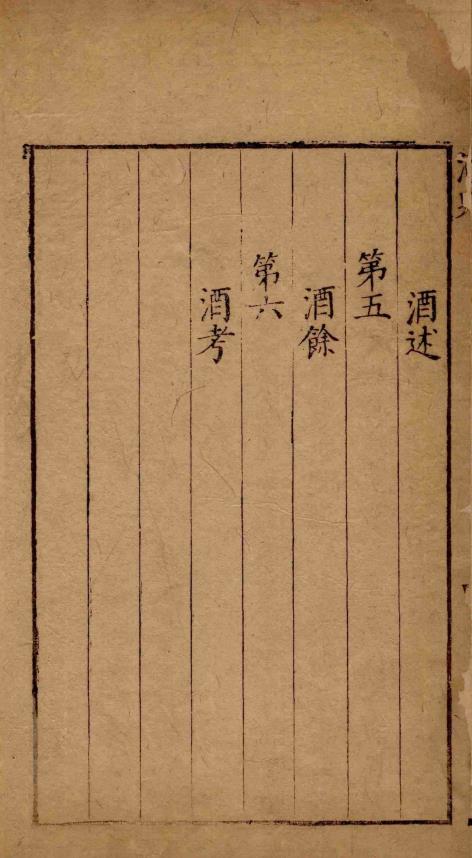 酒述
第五
酒餘
第六
酒考